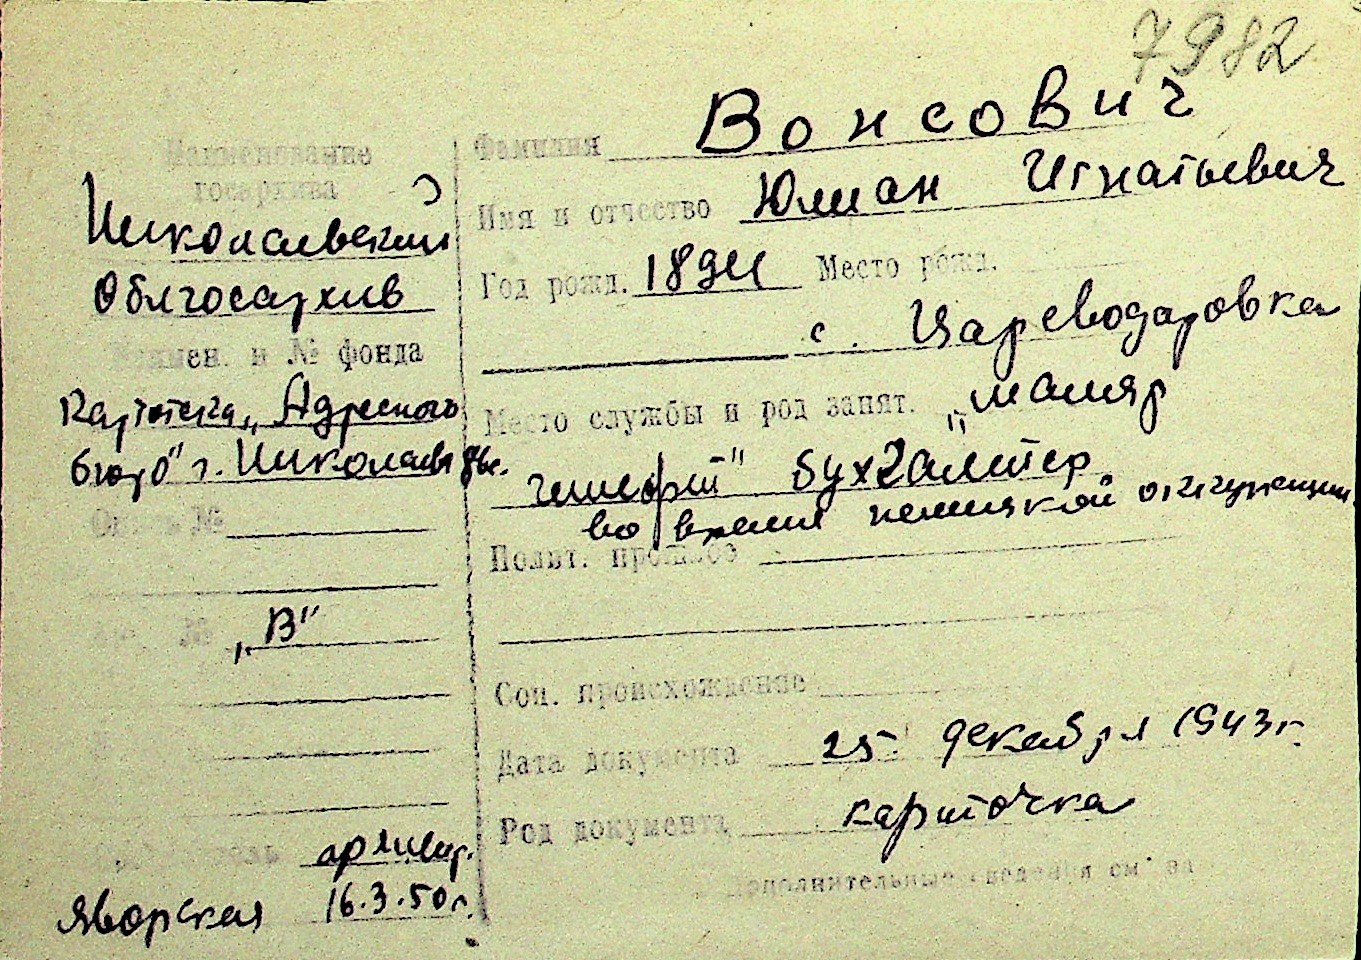 7982
Наименование
госархива
Николаевский
Облгосархив
Наимен. и № фонда
Картотека „Адресного
бюро" г. Николаева
Опись №
№ „В"
архивар.
Яворская 16.3.50г.
Фамилия Вонсович
Имя и отчество Юлиан Игнатьевич
Год рожд. 1894 Место рожд.
с. Цареводаровка
Место службы и род занят. „маляр
" бухгалтер
во время немецкой оккупации
Полит. прошлое
Соц. происхождение
Дата документа 25 декабря 1943г.
Род документа карточка
Дополнительные сведения см. на